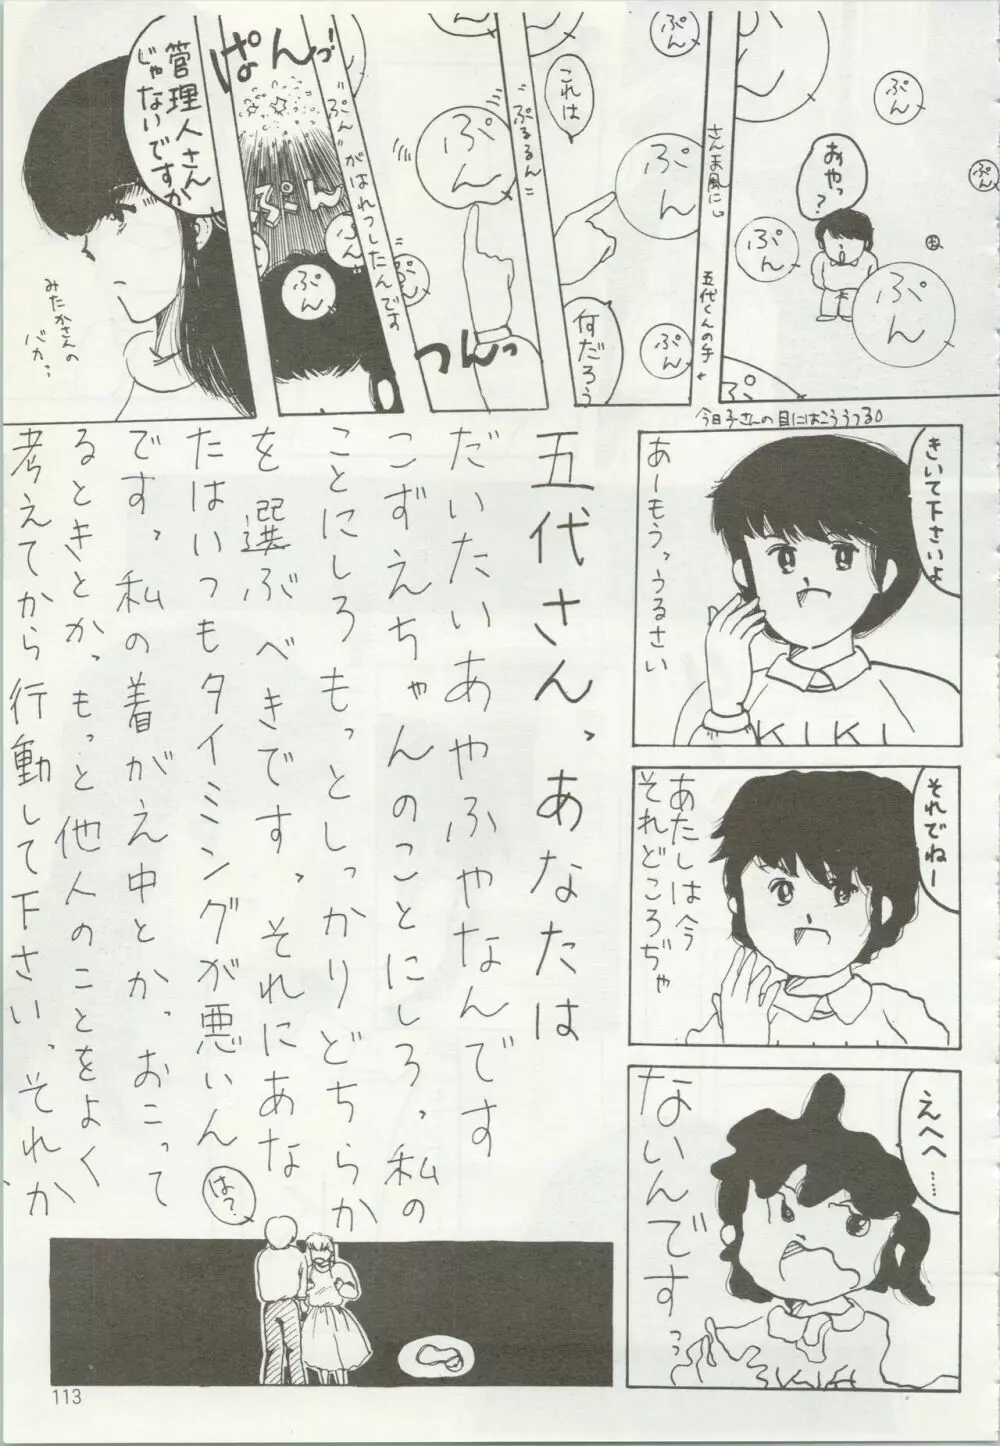 ぷん
ぷん
ぷん
おやっ?
ぷん
ぷん
ぷん
さんま風に
五代くんの手
ぷん
ぷん
これは
何だろう
"ぷるるん"
ぷん
つんっ
"ぷん"がはれつしたんです
ぱんっ!
ぷん
ぷん
ぷん
ぷん
管理人さん
じゃないですか
みたかさんの
バカっ
今日子さんの目にはこううつる
きいて下さいよ
あーもうっうるさい
KIKI
それでねー
あたしは今
それどころぢゃ
えへへ……
ないんですっ
五代さん、あなたは
だいたいあやふやなんです
こずえちゃんのことにしろ、私の
ことにしろもっとしっかりどちらか
を選ぶべきです。それにあな
たはいつもタイミングが悪いん
です。私の着がえ中とか、おこって
るときとか、もっと他人のことをよく
考えてから行動して下さい、それか
は?
113